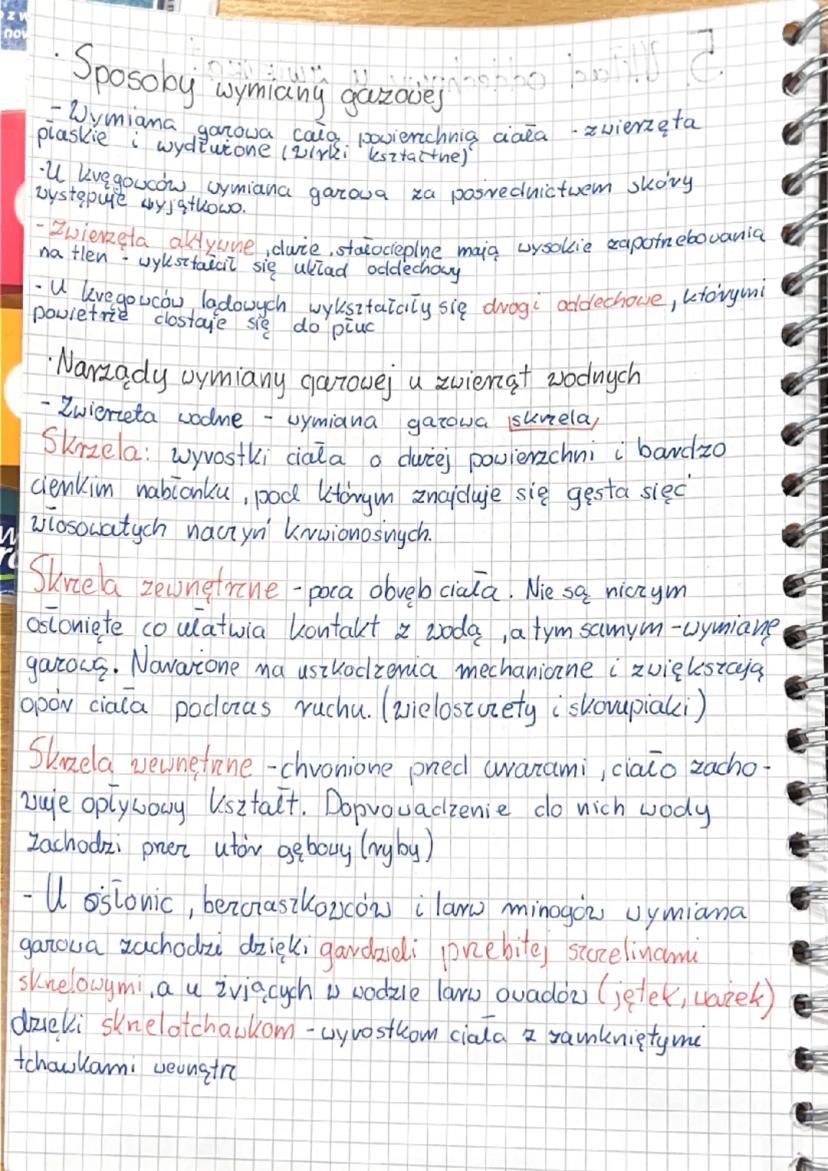 · Sposoby wymiany gazowej
- Wymiana gazowa całą powierzchnią ciała - zwierzęta
płaskie i wydłużone (wirki kształtne)
- U kręgowców wymiana gazowa za pośrednictwem skóry
występuje wyjątkowo.
- Zwierzęta aktywne, duże, stałocieplne mają wysokie zapotrzebowania
na tlen - wykształcił się układ oddechowy
- U kręgowców lądowych wykształciły się drogi oddechowe, którymi
powietrze dostaje się do płuc
· Narządy wymiany gazowej u zwierząt wodnych
- Zwierzęta wodne - wymiana gazowa skrzela,
Skrzela: wyrostki ciała o dużej powierzchni i bardzo
cienkim nabłonku, pod którym znajduje się gęsta sięć
włosowatych naczyń krwionośnych.
Skrzela zewnętrzne - poza obręb ciała. Nie są niczym
osłonięte co ułatwia kontakt z wodą, a tym samym - wymianę
gazową. Narażone na uszkodzenia mechaniczne i zwiększają
opór ciała podczas ruchu. (wieloszczety i skorupiaki)
Skrzela wewnętrzne - chronione przed urazami, ciało zacho-
wuje opływowy kształt. Doprowadzenie do nich wody
zachodzi przez otwór gębowy (ryby)
- U osłonic, bezczaszkowców i larw minogów wymiana
gazowa zachodzi dzięki gardzieli przebitej szczelinami
skrzelowymi, a u żyjących w wodzie larw owadów (jętek, ważek)
dzięki skrzelotchawkom - wyrostkom ciała z zamkniętymi
tchawkami wewnątrz